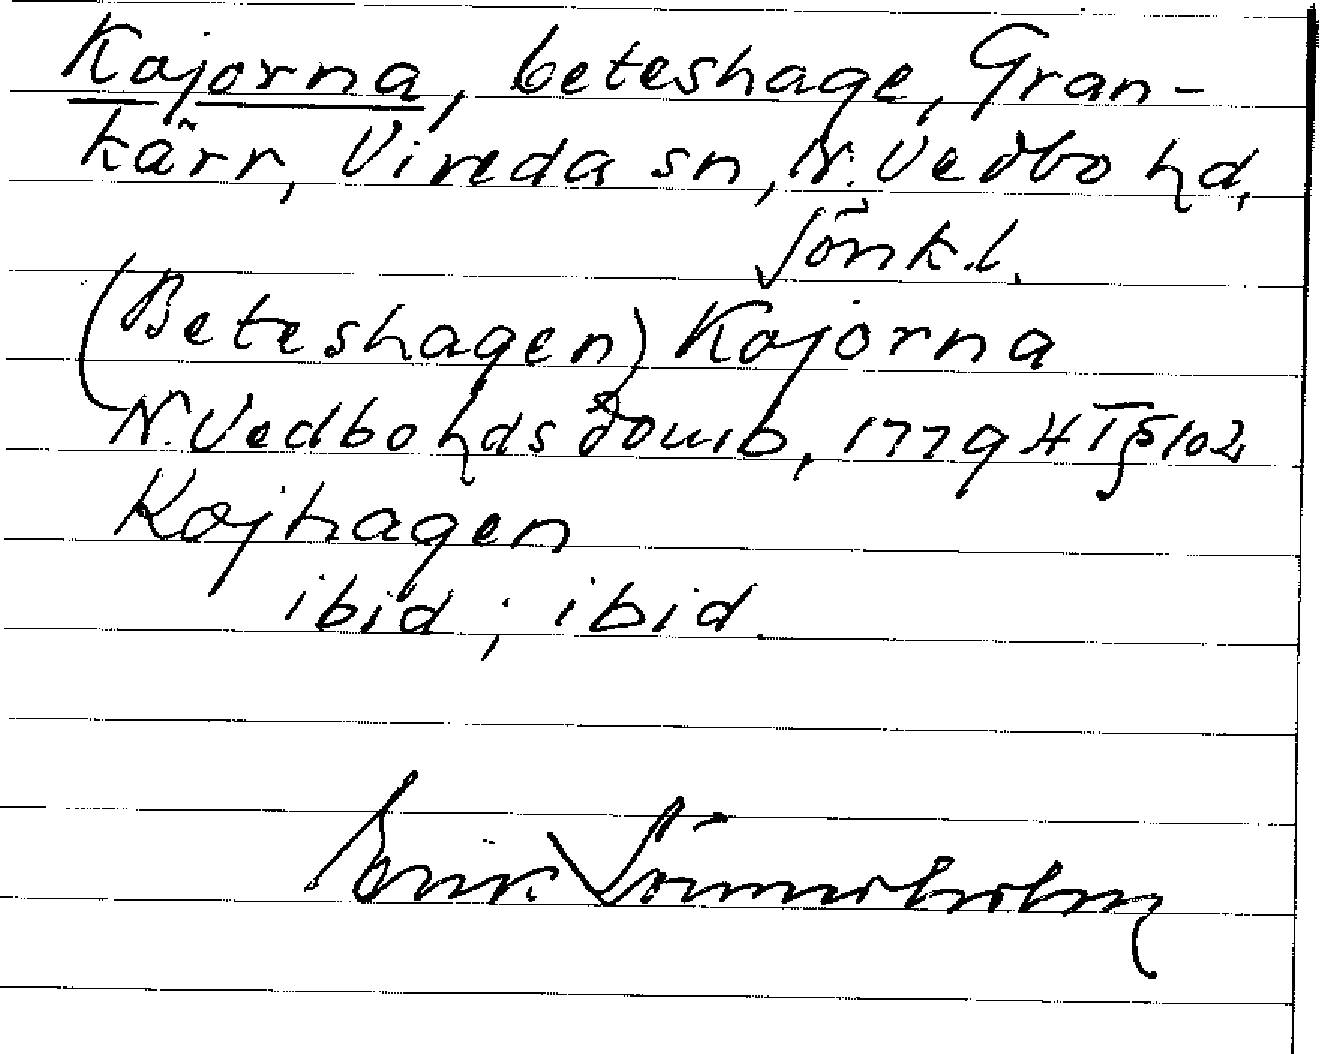 Kojorna, beteshage, Gran-
kärr, Vireda sn, N. Vedbo hd,
Jönk.l.
(Beteshagen) Kojorna
N. Vedbo hds domb, 1779 HT § 102
Kojhagen
ibid; ibid
Erik